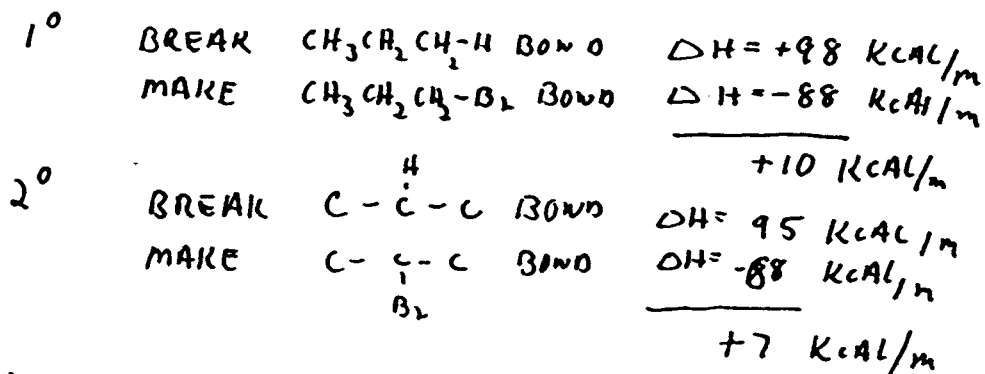 1° BREAK CH3CH2CH2-H BOND ΔH = +98 KCAL/m
MAKE CH3CH2CH2-Br BOND ΔH = -88 KCAL/m
+10 KCAL/m
H
2° BREAK C - C - C BOND ΔH = 95 KCAL/m
MAKE C - C - C BOND ΔH = -88 KCAL/m
Br
+7 KCAL/m